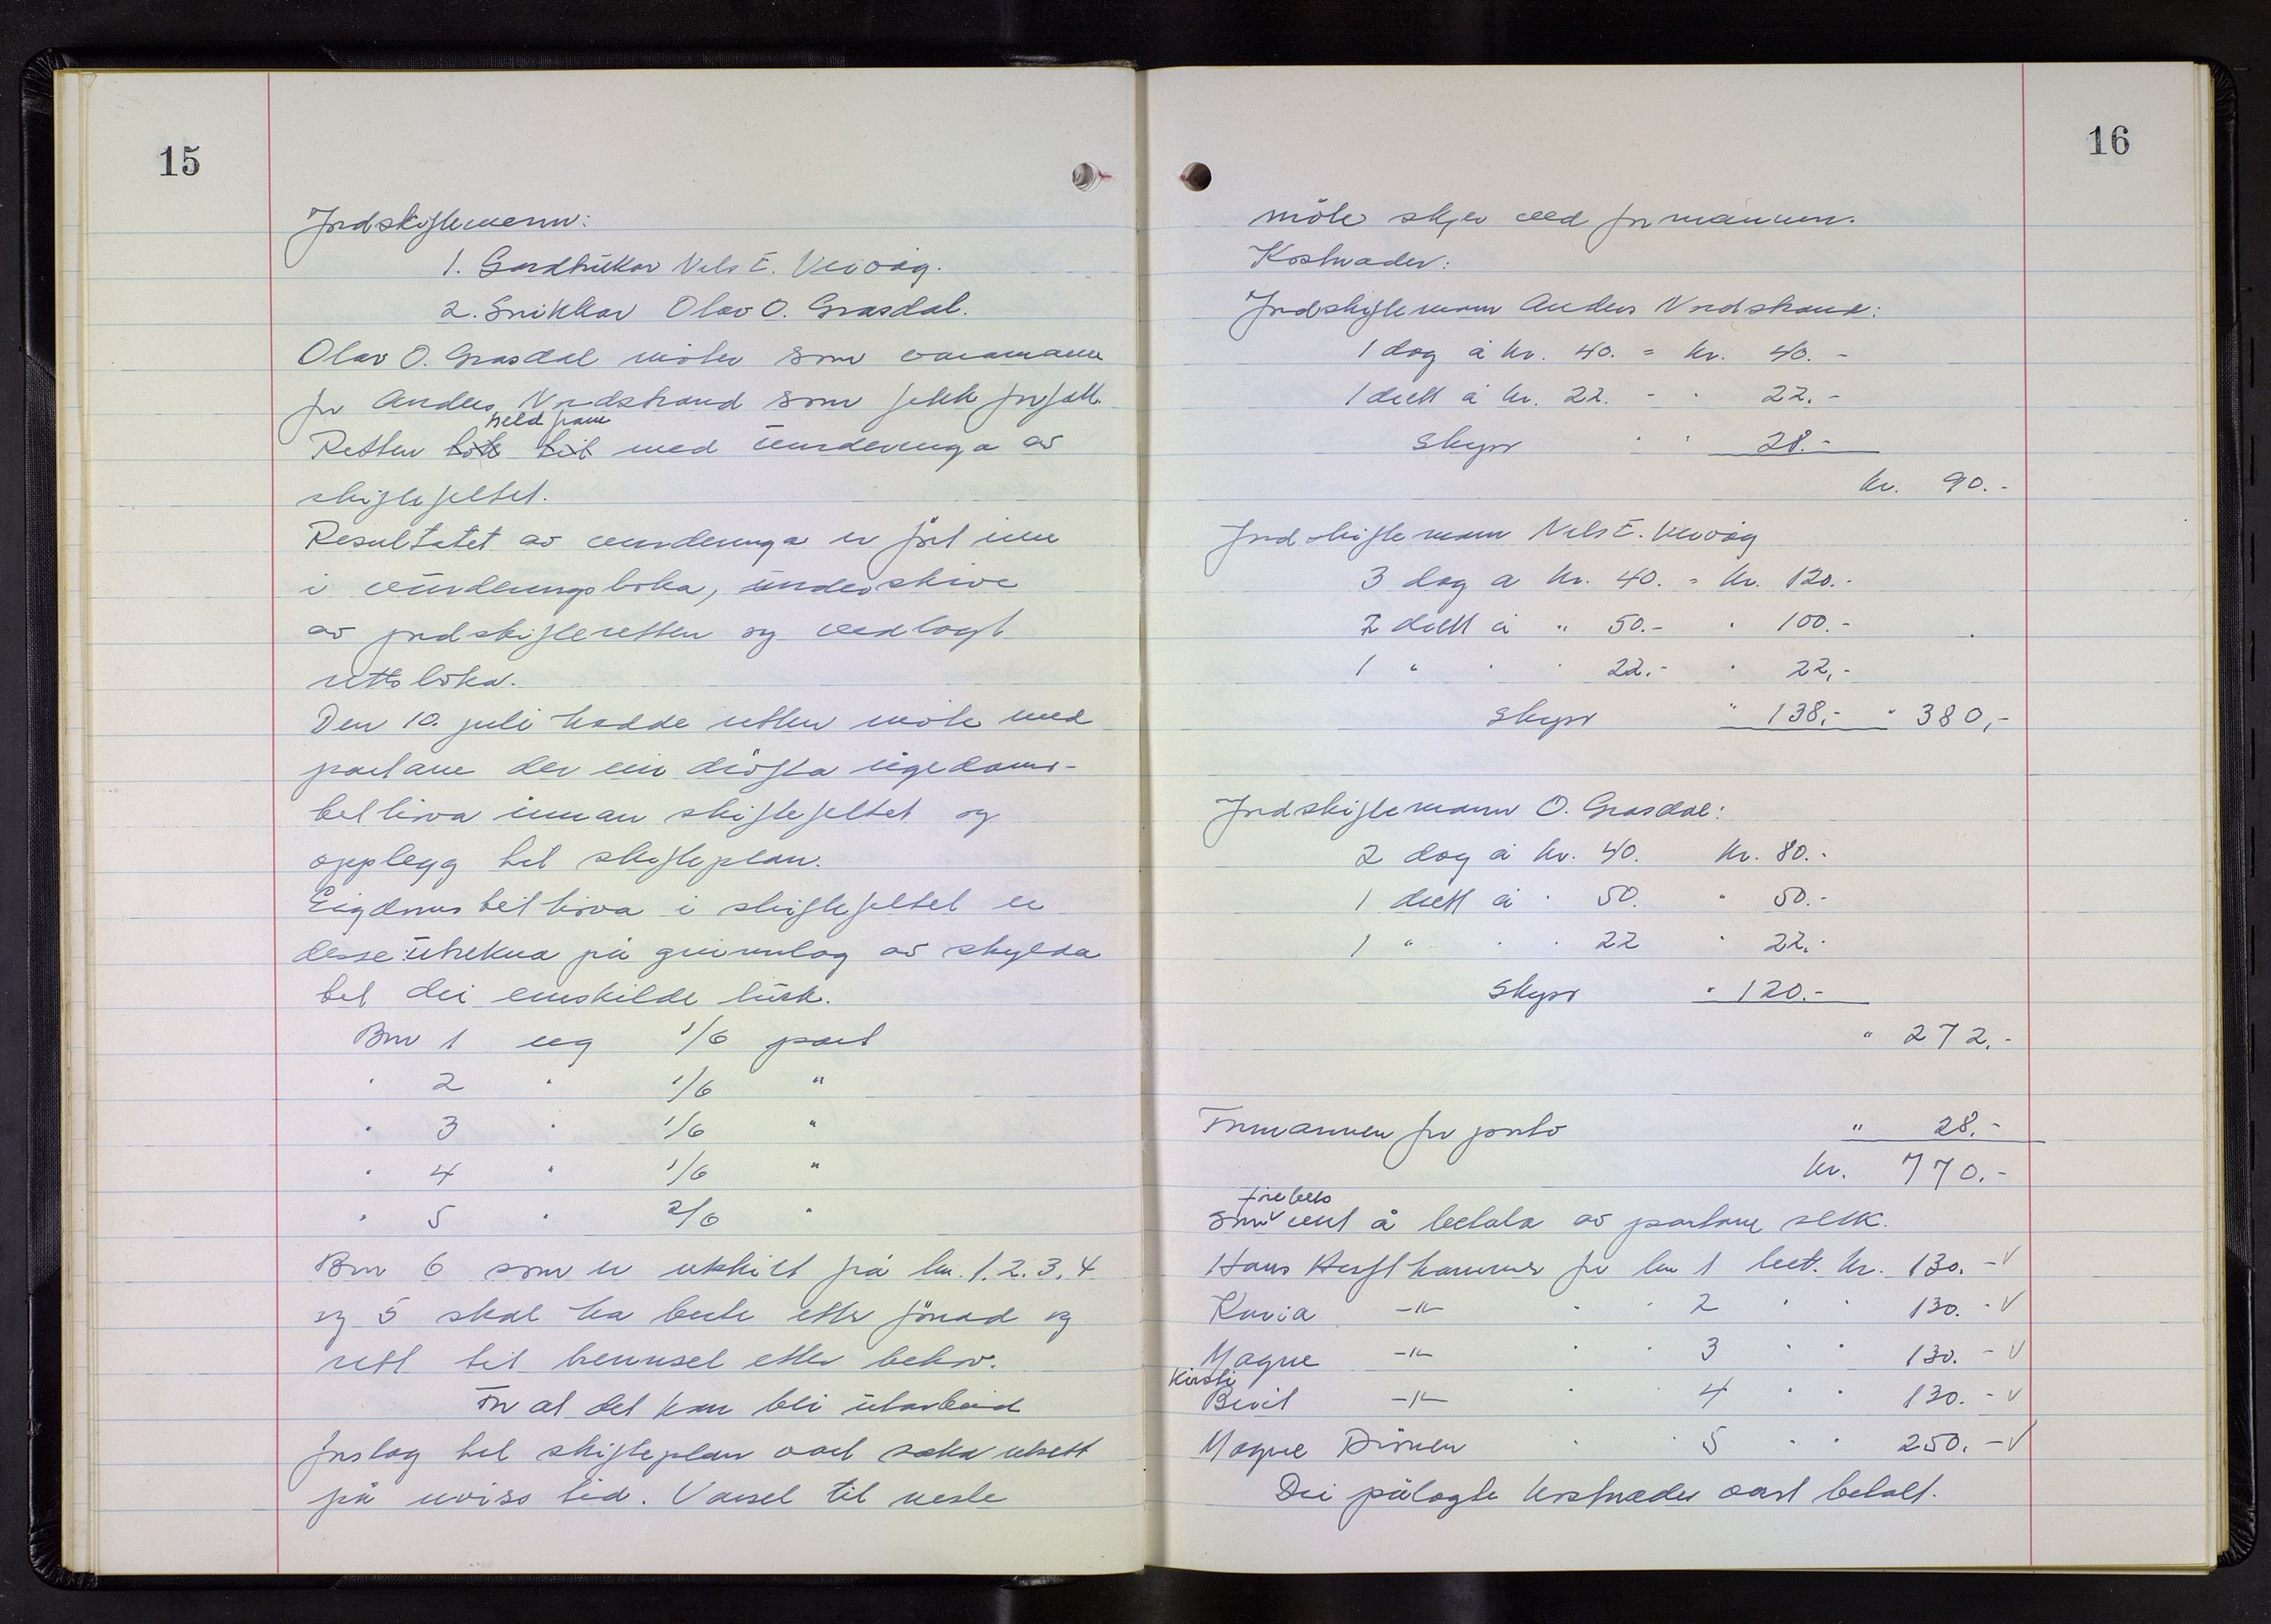 15
Jordskiftemenn:
1. Gardbrukar Nils E. Veivåg.
2. Snikkar Olav O. Grasdal.
Olav O. Grasdal møter som varamann
for Anders Nordstrand som fekk forfall.
held fram
Retten tok til med vurderinga av
skiftefeltet.
Resultatet av vurderinga er ført inn
i vurderingsboka, underskrive
av jordskifteretten og vedlagt
rettsboka.
Den 10. juli hadde retten møte med
partane der ein drøfta eigedoms-
tilhøva innan skiftefeltet og
opplegg til skifteplan.
Eigdomstilhøva i skiftefeltet er
desse utrekna på grunnlag av skylda
til dei einskilde bruk.
Bnr 1 eig 1/6 part
" 2 " 1/6 "
" 3 " 1/6 "
" 4 " 1/6 "
" 5 " 2/6 "
Bnr 6 som er utskilt frå bnr. 1. 2. 3. 4
og 5 skal ha beite etter fönad og
rett til brennsel etter behov.
For at det kan bli utarbeid
forslag til skifteplan vart saka utsett
på uviss tid. Varsel til neste
16
møte skjer ved formannen.
Kostnader:
Jordskiftemann Anders Nordstrand:
1 dag à kr. 40. = kr. 40.-
1 diett à kr. 22. - " 22.-
Skyss " " 28.-
kr. 90.-
Jordskiftemann Nils E. Veivåg
3 dag a kr. 40. = kr. 120.-
2 diett à " 50.- " 100.-
1 " " " 22.- " 22,-
Skyss " 138,- " 380,-
Jordskiftemann O. Grasdal:
2 dag à kr. 40. kr. 80.-
1 diett à " 50. " 50.-
1 " " " 22 " 22.-
Skyss " 120.-
" 272.-
Formannen for porto " 28.-
kr. 770.-
førebels
som vert å betala av partane slik.
Hans for bnr 1 bet. kr. 130.- v
-"- " " 2 " " 130.- v
Magne -"- " " 3 " " 130.- v
Kirsti
Berit -"- " " 4 " " 130.- v
Magne " " 5 " " 250.- v
Dei pålagte kostnader vart betalt.